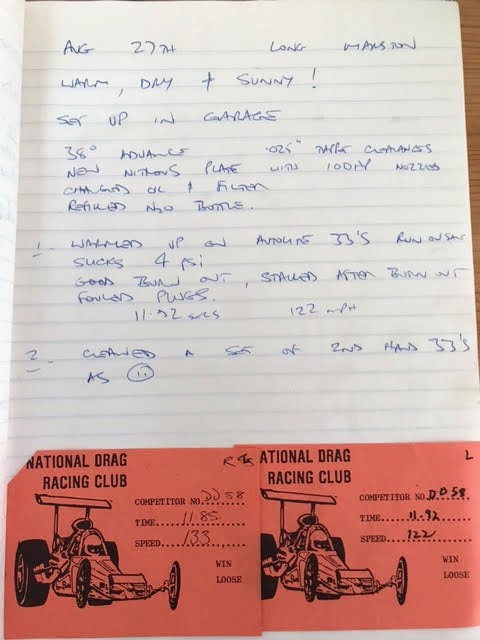 AUG 27TH LONG MARSTON
WARM, DRY + SUNNY !
SET UP IN GARAGE
38° ADVANCE .025" TAPPET CLEARANCES
NEW NITROUS PLATE WITH 100HP NOZZLES
CHANGED OIL + FILTER
REFILLED N2O BOTTLE.
1. WARMED UP ON AUTOLITE 33'S RUN ON SAT
SUCKS 4 PSI
GOOD BURN OUT, STALLED AFTER BURN OUT
FOULED PLUGS.
11.92 SECS 122 MPH
2. CLEANED A SET OF 2ND HAND 33'S
AS
NATIONAL DRAG
RACING CLUB
COMPETITOR NO. DD 58
TIME 11.85
SPEED 133
WIN
LOOSE
NATIONAL DRAG L
RACING CLUB
COMPETITOR NO. DD 58
TIME 11.92
SPEED 122
WIN
LOOSE